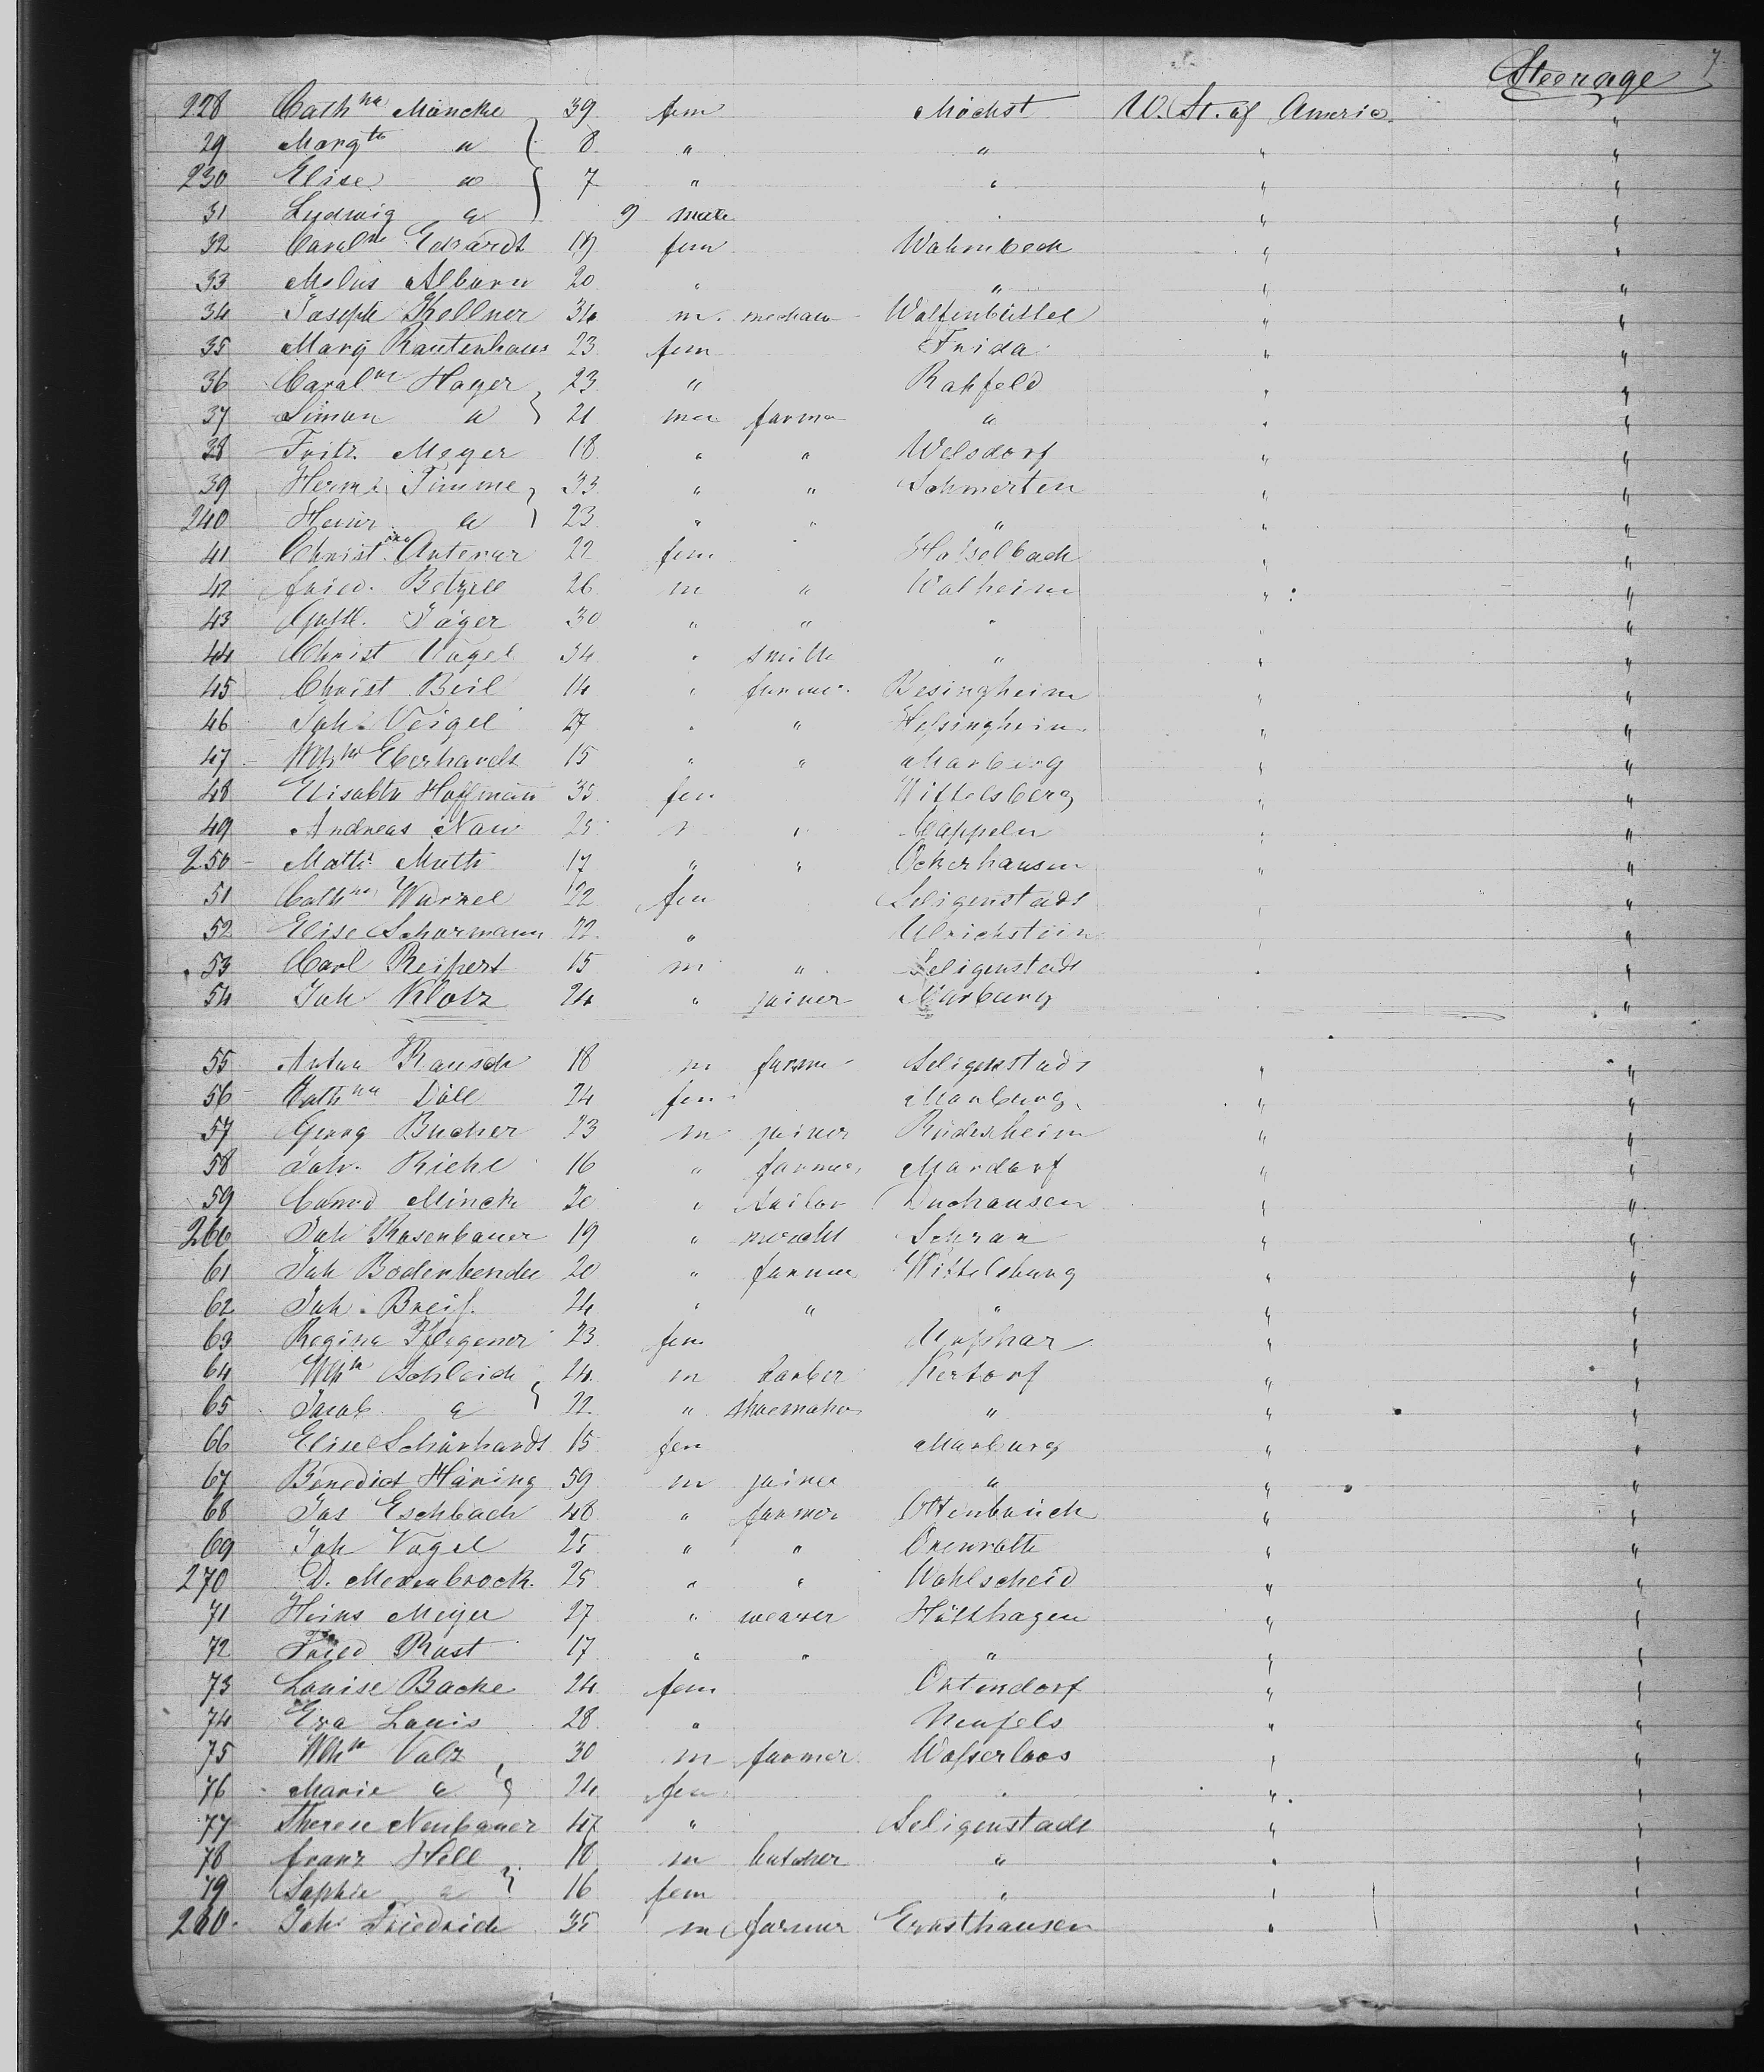 Steerage 7
228 Cathna Möncke 39 fem Höchst U. St. of Americ
29 Margth " 8 " " " "
230 Elise " 7 " " " "
31 Ludwig " 9 male " " "
32 Caralne Eckardt 19 fem Wahmbeck " "
33 Alburn 20 " " " "
34 Joseph Kellner 34 m. mechan Wolfenbüttel " "
35 Mary Rautenhaus 23 fem Frida " "
36 Caralne Hager 23 " " "
37 Simon " 21 farmer " " "
38 Fritz Meyer 18 " " Welsdorf " "
39 Herm. Timme 33 " " Schmerten " "
240 Heinr " 23 " " " " "
41 Christine 22 fem Hasselbach " "
42 fried. Betzell 26 m " Walheim " "
43 Gottl. Jäger 30 " " " " "
44 Christ Vogel 34 " smith " " "
45 Christ Beil 14 " farmer Besingheim " "
46 Joh. Veigel 27 " " Hessingheim " "
47 Whm Eberhardt 15 " " Marburg " "
48 Elisabth Hoffmann 35 fem Wittelsberg " "
49 Andreas Nau 25 " Cappeln " "
250 Matth. Muth 17 " " Ockerhausen " "
51 Cathna Wurzel 22 fem Seligenstadt " "
52 Elise Schurmann 22 " Ulrichstein " "
53 Carl Reifert 15 m " Seligenstadt " "
54 Joh Klotz 24 " joiner Marburg " "
55 Anton Rausch 18 m farmer Seligenstadt " "
56 Cathna Döll 24 fem Marburg " "
57 Georg Bucher 23 m joiner Rüdesheim " "
58 Joh. Riehl 16 " farmer Mardorf " "
59 Conrad Minck 20 " tailor " "
260 Joh Rosenbauer 19 " mercht " "
61 Joh Bodenbender 20 " farmer Wittelsburg " "
62 Joh. Breiß. 24 " " " " "
63 Regina 23 fem " "
64 Whm Schleich 24 m barber Kertorf " "
65 Jacob " 22 " shoemaker " " "
66 Elise Schürhardt 15 fem Marburg " "
67 Benedict Häring 59 m joiner " " "
68 Jos Eschbach 48 " farmer " "
69 Joh Vogel 25 " " Overrath " "
270 D. Mexenbrock. 25 " " Wahlscheid " "
71 Heins Meyer 27 " weaver Hülshagen " "
72 Fried Rust 17 " " " " "
73 Louise Backe 24 fem Ostendorf " "
74 Eva Louis 28 " Neufels " "
75 Whm Valz 30 m farmer Wasserloos " "
76 Marie " 24 fem " " "
77 Therese Neubauer 47 " Seligenstadt " "
78 franz Hell 18 m butcher " " "
79 Sophie " 16 fem " " "
280 Joh Friedrich 35 m farmer Ernsthausen " "